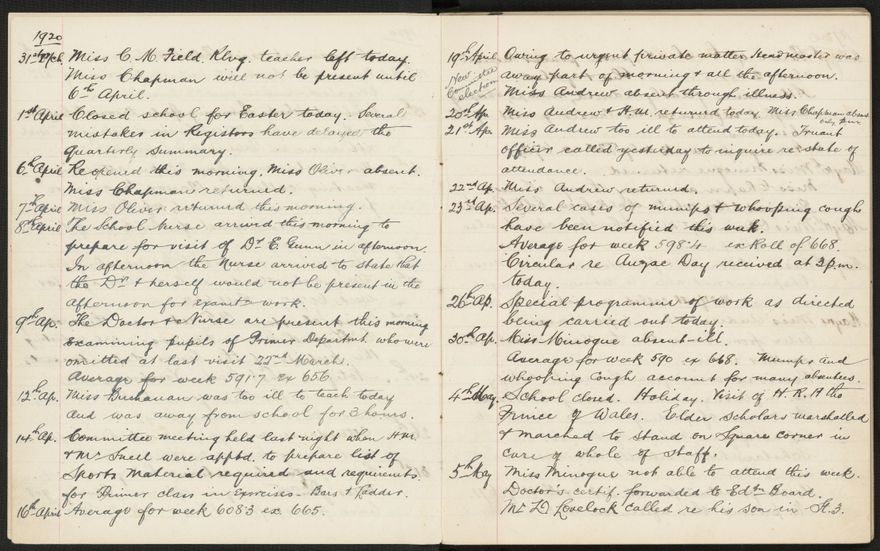 1920
31st Mch. Miss C. M. Field. Rlvg. teacher left today.
Miss Chapman will not be present until
6th April.
1st April Closed school for Easter today. Several
mistakes in Registers have delayed the
Quarterly Summary.
6th April Reopened this morning. Miss Oliver absent.
Miss Chapman returned.
7th April Miss Oliver returned this morning.
8th April The School Nurse arrived this morning to
prepare for visit of Dr. E. Gunn in afternoon.
In afternoon the Nurse arrived to state that
the Dr. & herself would not be present in the
afternoon for examtn work.
9th Ap. The Doctor & Nurse are present this morning
examining pupils of Primer Departmt who were
omitted at last visit 23rd March.
Average for week 591.7 ex 656.
12th Ap. Miss Buchanan was too ill to teach today
and was away from school for 3 hours.
14th Ap. Committee meeting held last night when H.M.
& Mr. Snell were apptd. to prepare list of
Sports Material required and requiremts.
for Primer class in Exercises - Bars & Ladder.
16th April Average for week 608.3 ex 665.
19th April Owing to urgent private matter Headmaster was
away part of morning & all the afternoon.
Miss Andrew absent through illness.
New Committee election
20th Ap. Miss Andrew & H.M. returned today. Miss Chapman absent
21st Ap. Miss Andrew too ill to attend today. Truant
officer called yesterday to inquire re state of
attendance.
22nd Ap. Miss Andrew returned.
23rd Ap. Several cases of mumps & whooping cough
have been notified this week.
Average for week 598.4 ex Roll of 668.
Circular re Anzac Day received at 2 p.m.
today.
26th Ap. Special programme of work as directed
being carried out today.
30th Ap. Miss Minogue absent - ill.
Average for week 590 ex 668. Mumps and
whooping cough account for many absentees.
4th May. School closed. Holiday. Visit of H.R.H the
Prince of Wales. Elder Scholars marshalled
& marched to stand on Square corner in
care of whole of Staff.
5th May Miss Minogue not able to attend this week.
Doctor's certif. forwarded to Edtn Board.
Mr. D Lovelock called re his son in St. 3.